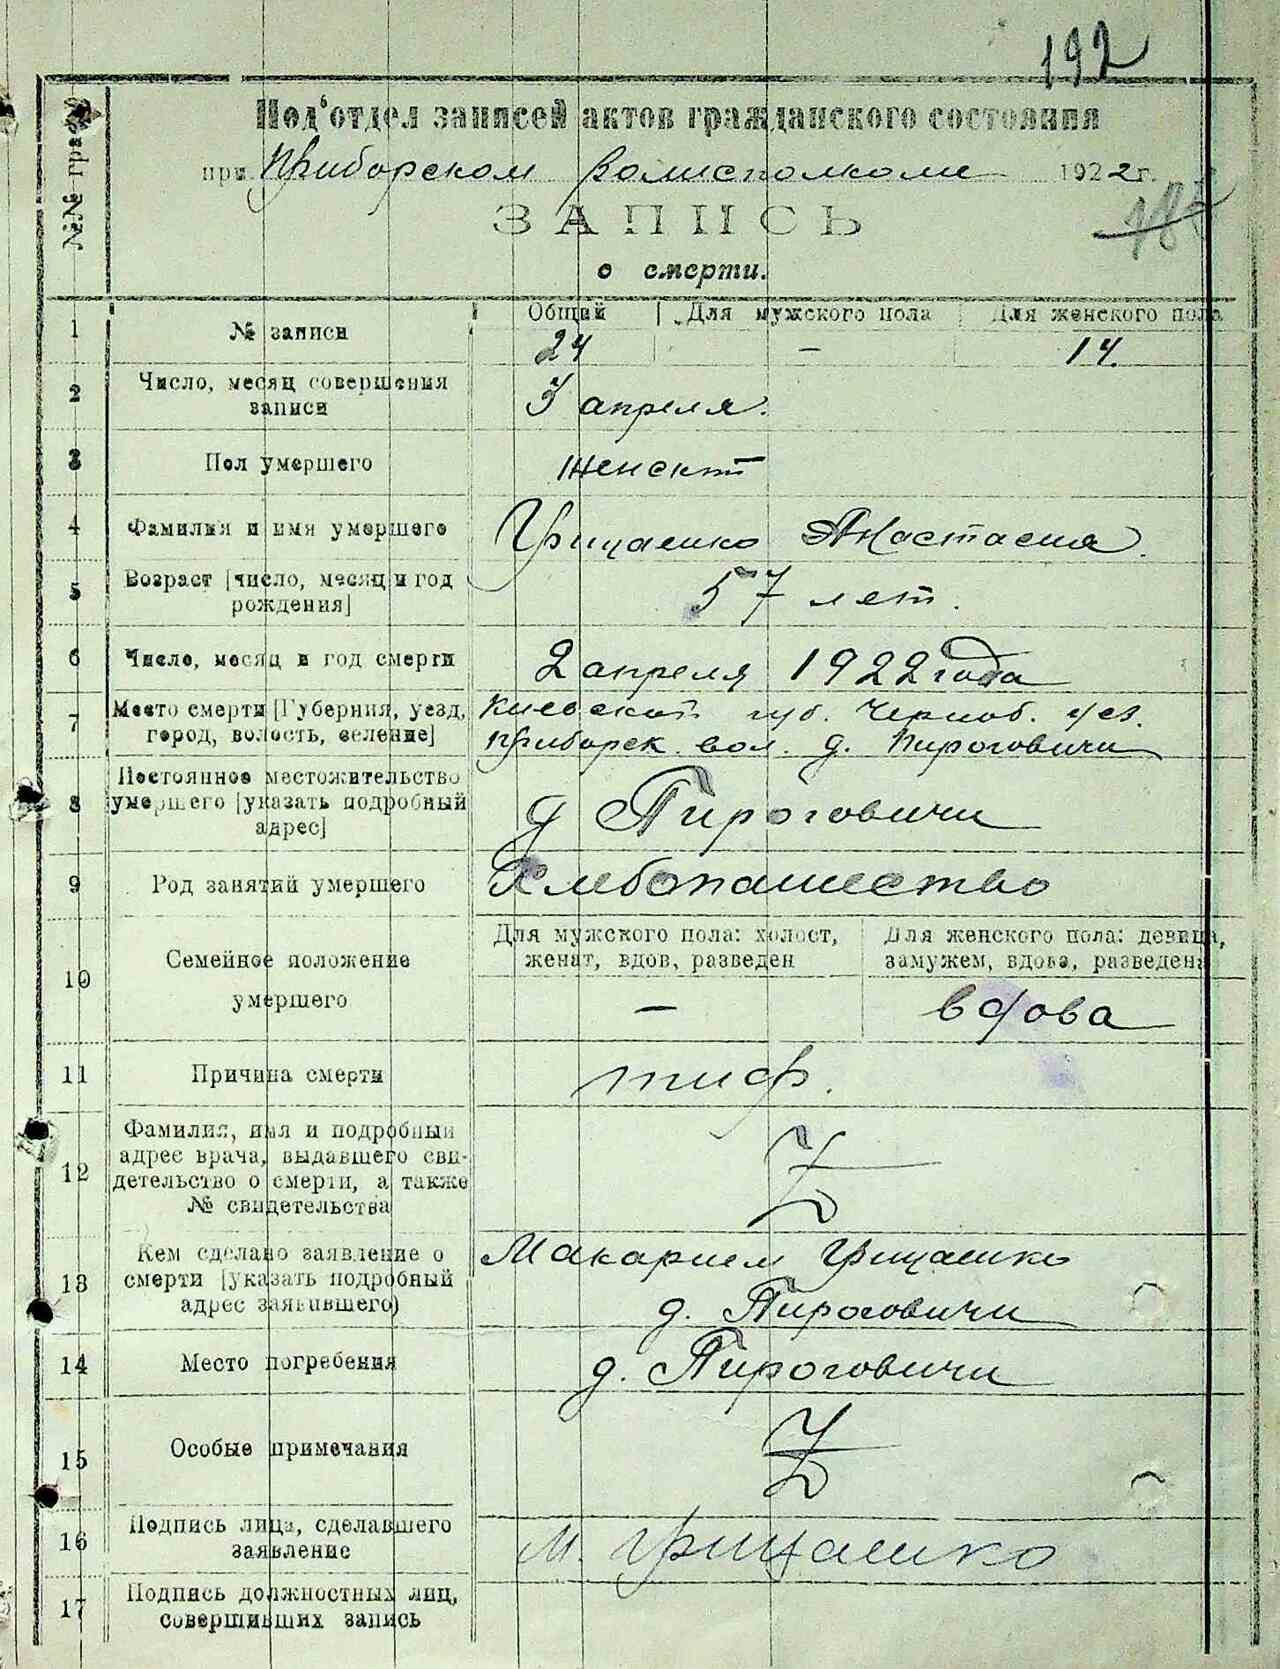 192
№№ граф
Под'отдел записей актов гражданского состояния
при Приборском Волисполкоме 1922 г.
ЗАПИСЬ
о смерти.
1 № записи Общий Для мужского пола Для женского пола
24 — 14.
2 Число, месяц совершения записи
3 апреля.
3 Пол умершего
женский
4 Фамилия и имя умершего
Грищенко Анастасия.
5 Возраст [число, месяц и год рождения]
57 лет.
6 Число, месяц и год смерти
2 апреля 1922 года
7 Место смерти [Губерния, уезд, город, волость, селение]
Киевской губ. Черноб. уез.
Приборск. вол. д. Пироговичи
8 Постоянное местожительство умершего [указать подробный адрес]
д Пироговичи
9 Род занятий умершего
Хлебопашество
10 Семейное положение умершего
Для мужского пола: холост, женат, вдов, разведен
Для женского пола: девица, замужем, вдова, разведена
— вдова
11 Причина смерти
тиф.
12 Фамилия, имя и подробный адрес врача, выдавшего свидетельство о смерти, а также № свидетельства
13 Кем сделано заявление о смерти [указать подробный адрес заявившего)
Макарием Грищенко
д. Пироговичи
14 Место погребения
д. Пироговичи
15 Особые примечания
16 Подпись лица, сделавшего заявление
М. Грищенко
17 Подпись должностных лиц, совершивших запись